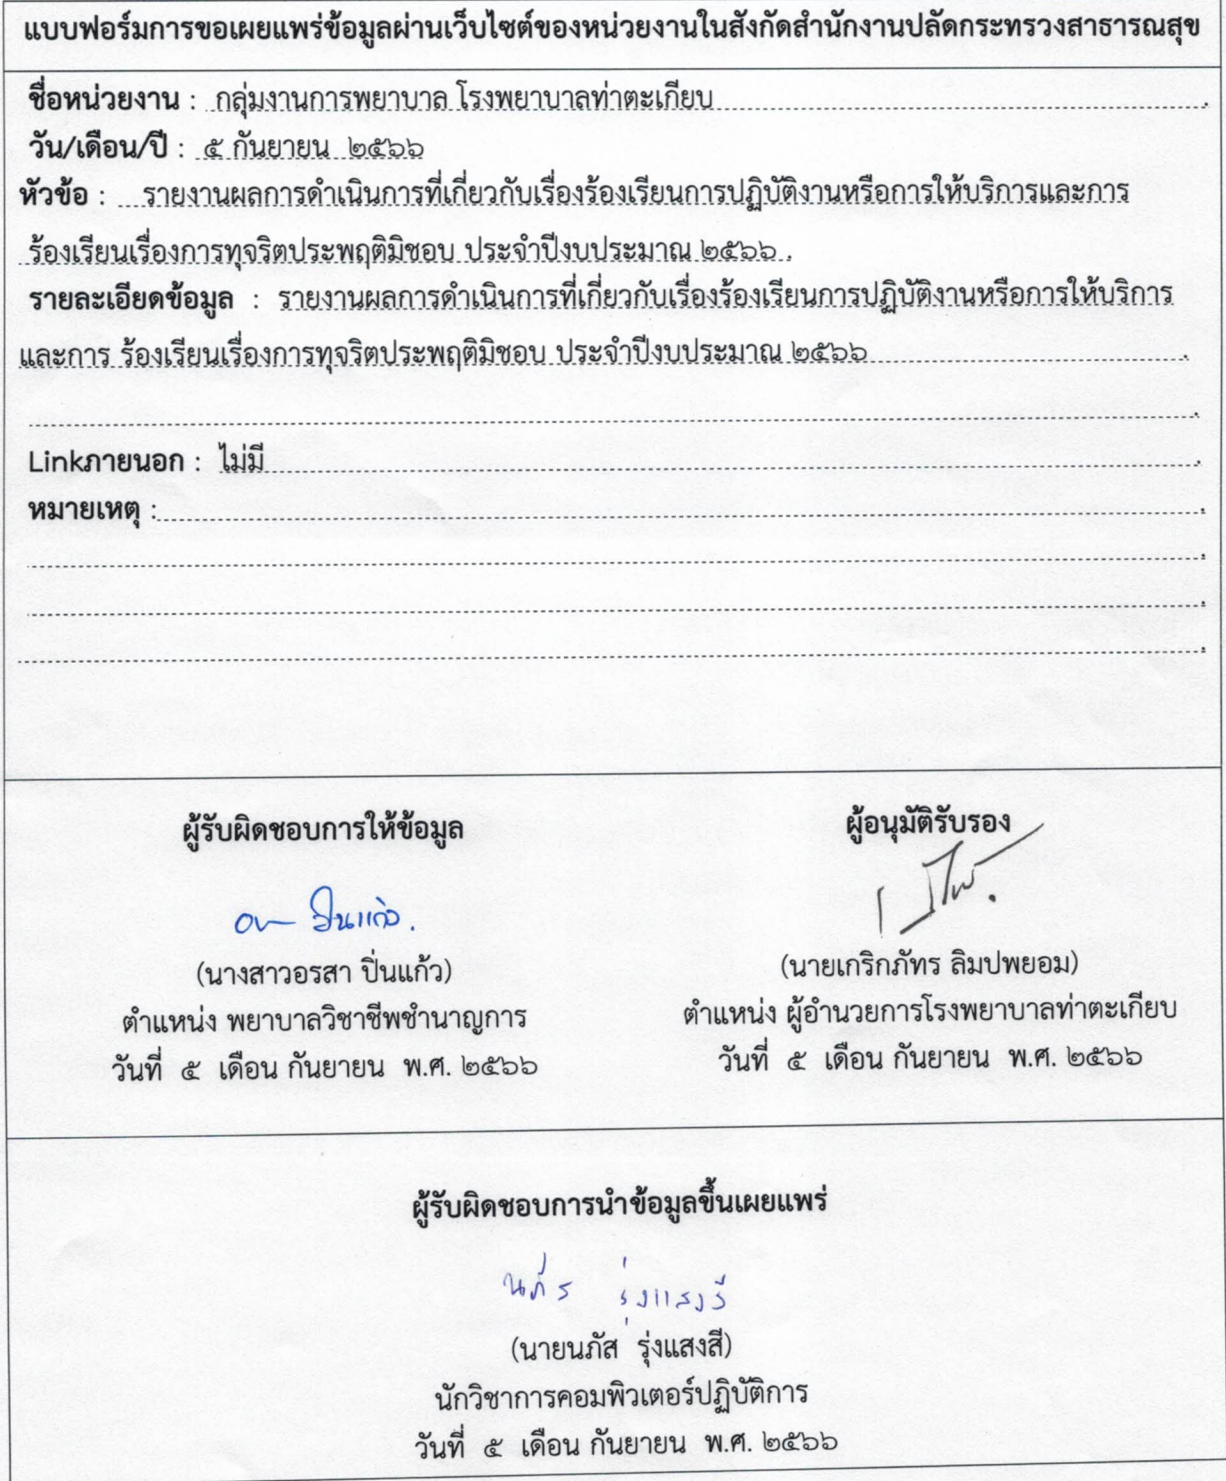 แบบฟอร์มการขอเผยแพร่ข้อมูลผ่านเว็บไซต์ของหน่วยงานในสังกัดสำนักงานปลัดกระทรวงสาธารณสุข
ชื่อหน่วยงาน : กลุ่มงานการพยาบาล โรงพยาบาลท่าตะเกียบ
วัน/เดือน/ปี : ๕ กันยายน ๒๕๖๖
หัวข้อ : รายงานผลการดำเนินการที่เกี่ยวกับเรื่องร้องเรียนการปฏิบัติงานหรือการให้บริการและการ
ร้องเรียนเรื่องการทุจริตประพฤติมิชอบ ประจำปีงบประมาณ ๒๕๖๖
รายละเอียดข้อมูล : รายงานผลการดำเนินการที่เกี่ยวกับเรื่องร้องเรียนการปฏิบัติงานหรือการให้บริการ
และการ ร้องเรียนเรื่องการทุจริตประพฤติมิชอบ ประจำปีงบประมาณ ๒๕๖๖
Linkภายนอก : ไม่มี
หมายเหตุ :
ผู้รับผิดชอบการให้ข้อมูล
ปิ่นแก้ว
(นางสาวอรสา ปิ่นแก้ว)
ตำแหน่ง พยาบาลวิชาชีพชำนาญการ
วันที่ ๕ เดือน กันยายน พ.ศ. ๒๕๖๖
ผู้อนุมัติรับรอง
(นายเกริกภัทร ลิมปพยอม)
ตำแหน่ง ผู้อำนวยการโรงพยาบาลท่าตะเกียบ
วันที่ ๕ เดือน กันยายน พ.ศ. ๒๕๖๖
ผู้รับผิดชอบการนำข้อมูลขึ้นเผยแพร่
นภัส รุ่งแสงสี
(นายนภัส รุ่งแสงสี)
นักวิชาการคอมพิวเตอร์ปฏิบัติการ
วันที่ ๕ เดือน กันยายน พ.ศ. ๒๕๖๖